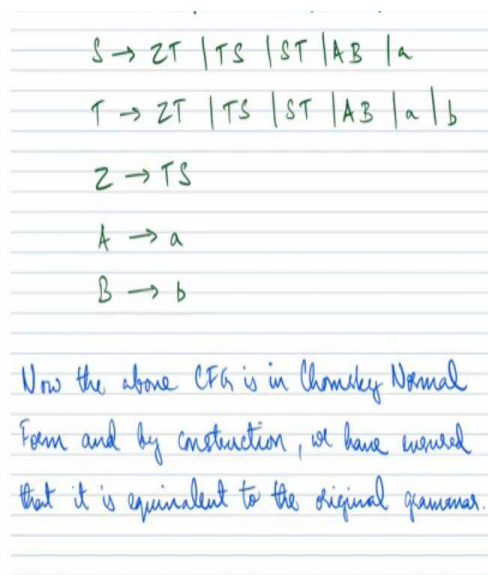 S → ZT | TS | ST | AB | a
T → ZT | TS | ST | AB | a | b
Z → TS
A → a
B → b
Now the above CFG is in Chomsky Normal
Form and by construction, we have ensured
that it is equivalent to the original grammar.